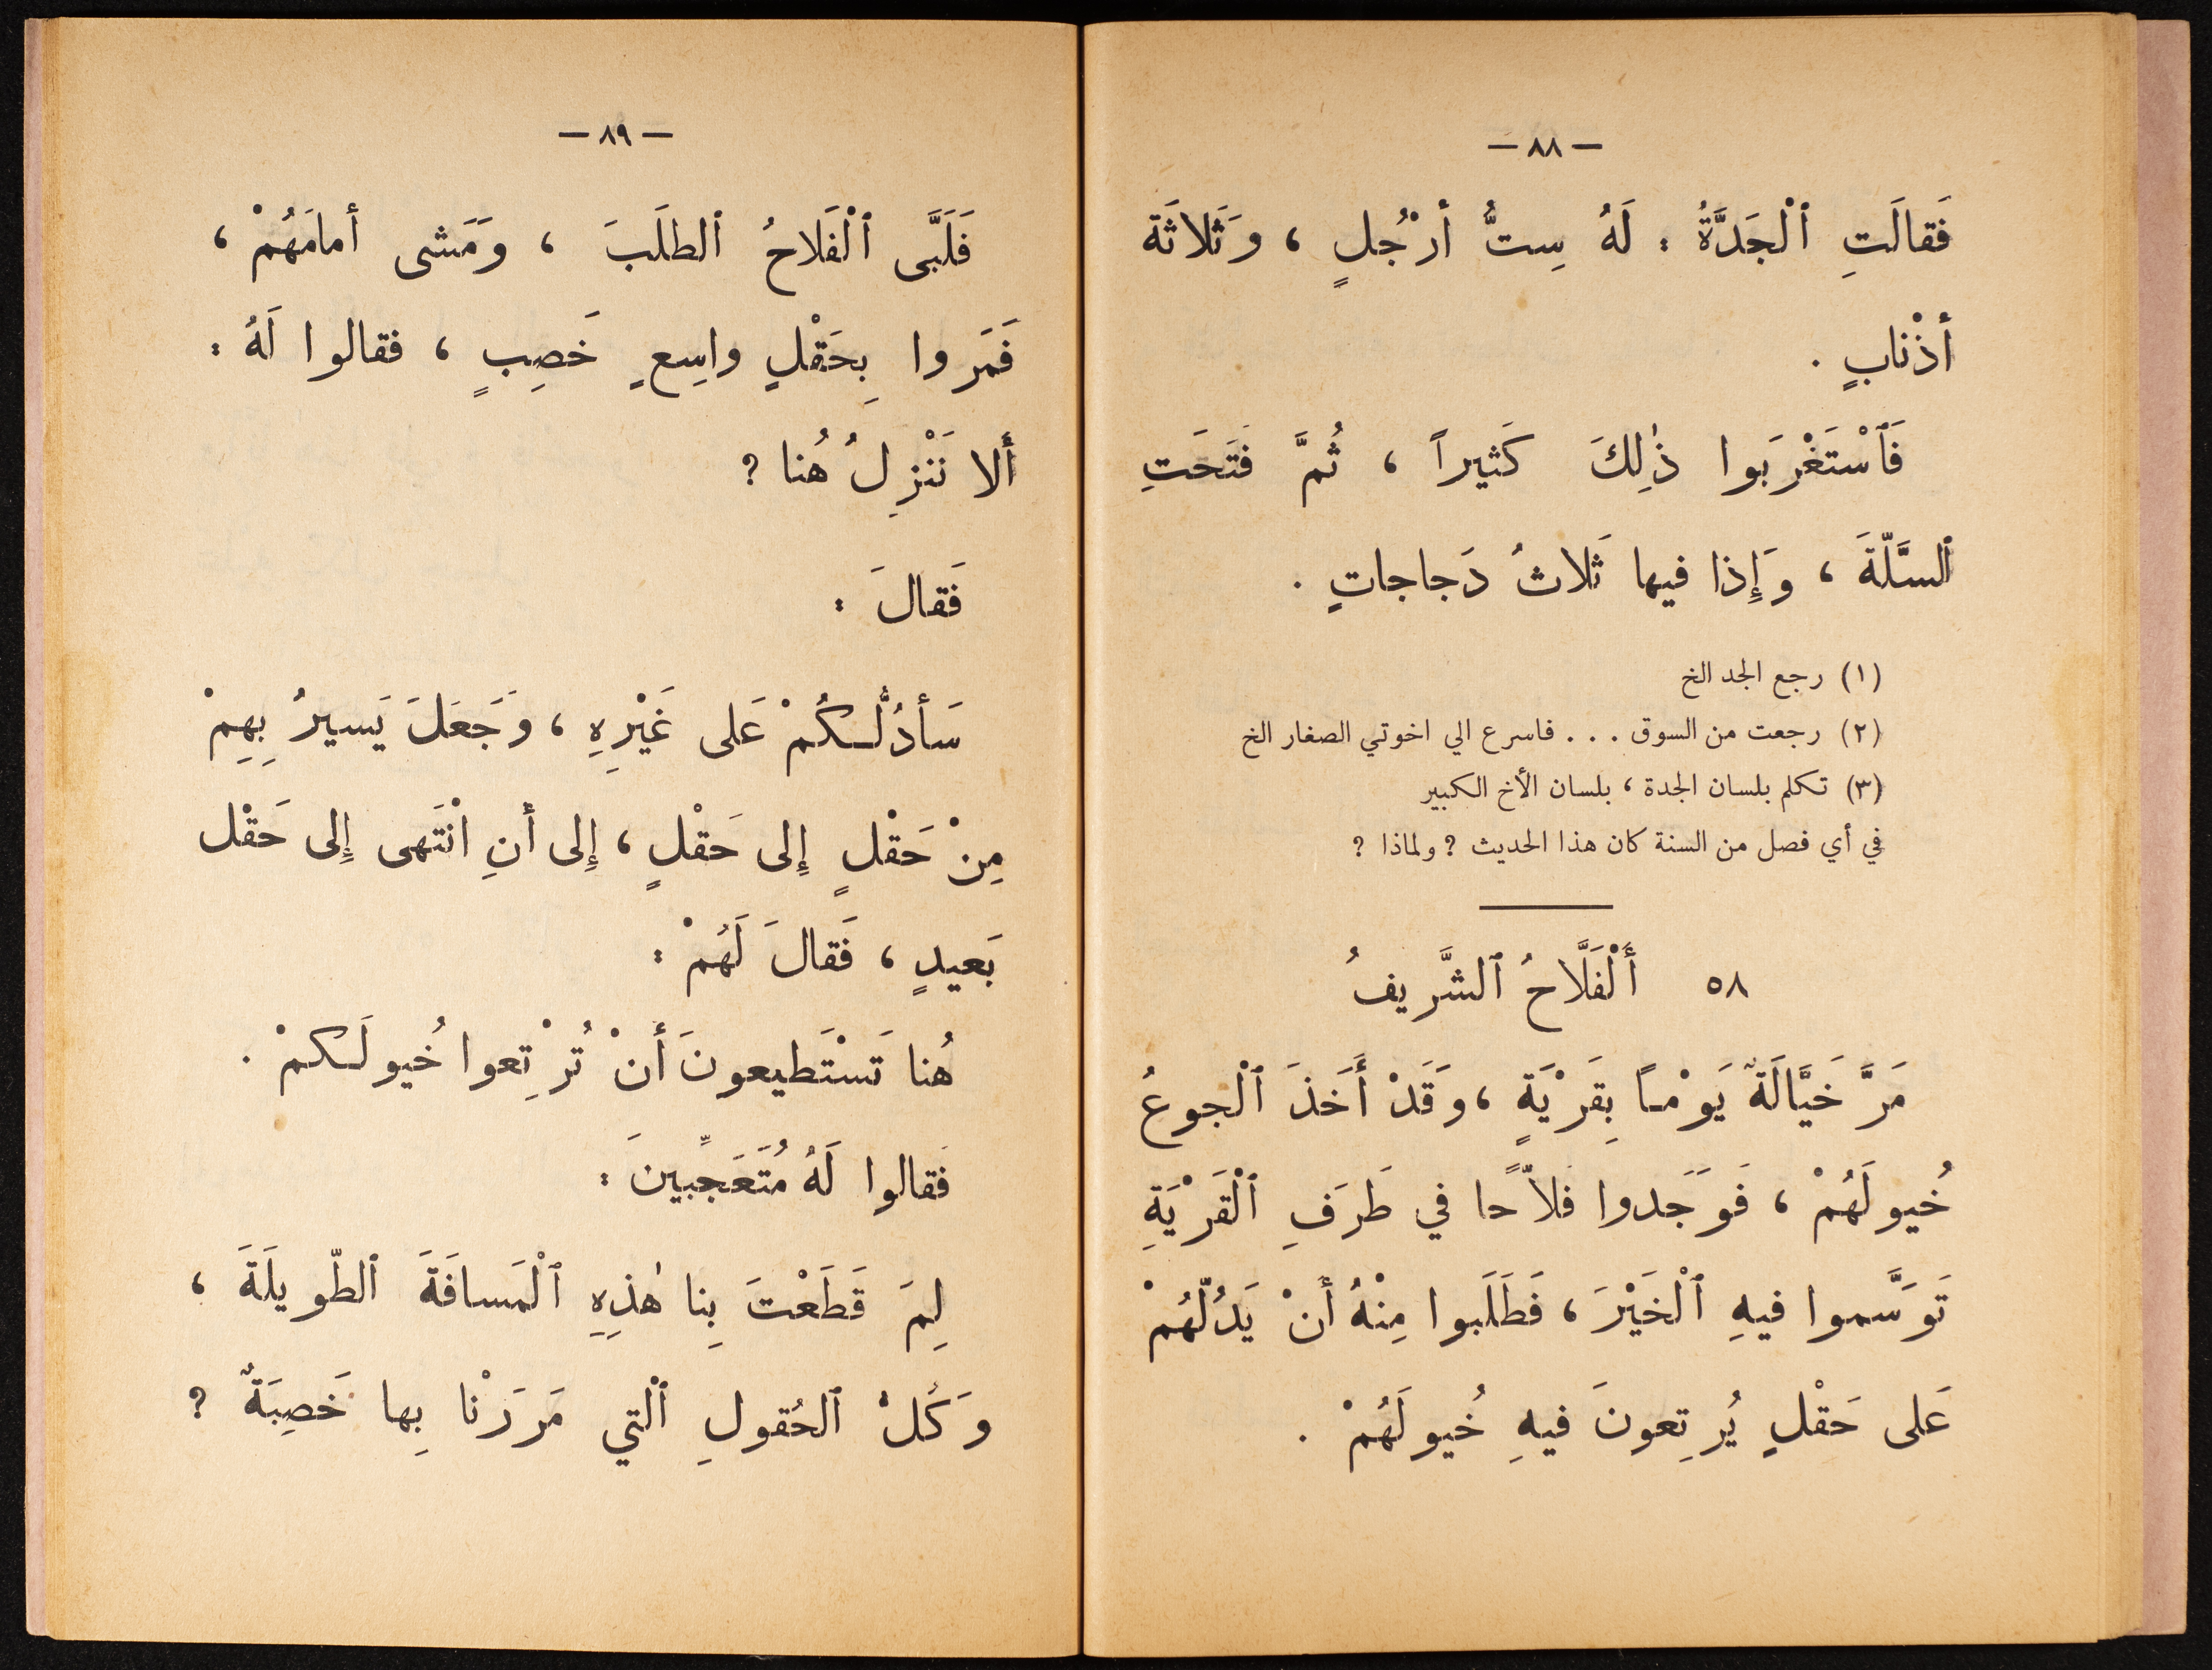 — ٨٨ —
فَقالَتِ ٱلْجَدَّةُ : لَهُ سِتُّ أرْجُلٍ ، وَثَلاثَة
أذْنابٍ .
فَٱسْتَغْرَبوا ذٰلِكَ كَثيراً ، ثُمَّ فَتَحَتِ
ٱلسَّلّةَ ، وَإِذا فيها ثَلاثُ دَجاجاتٍ .
(١) رجع الجد الخ
(٢) رجعت من السوق . . . فاسرع الي اخوتي الصغار الخ
(٣) تكلم بلسان الجدة ، بلسان الأخ الكبير
في أي فصل من السنة كان هذا الحديث ? ولماذا ?
٥٨ أَلْفَلَّاحُ ٱلشَّريفُ
مَرَّ خَيَّالَةٌ يَوْمًا بِقَرْيَةٍ ، وَقَدْ أَخَذَ ٱلْجوعُ
خُيولَهُمْ ، فَوَجَدوا فلاّحًا في طَرَفِ ٱلْقَرْيَةِ
تَوَسَّموا فيهِ ٱلْخَيْرَ ، فَطَلَبوا مِنْهُ أَنْ يَدُلّهُمْ
عَلى حَقْلٍ يُرتِعونَ فيهِ خُيولَهُمْ .
— ٨٩ —
فَلَبَّى ٱلْفَلاحُ ٱلطلَبَ ، وَمَشى أمامَهُمْ ،
فَمَروا بِحَقْلٍ واسِعٍ خَصِبٍ ، فقالوا لَهُ :
أَلا نَنْزِلُ هُنا ?
فَقالَ :
سَأدُلُّكُمْ عَلى غَيْرِهِ ، وَجَعَلَ يَسيرُ بِهِمْ
مِنْ حَقْلٍ إِلى حَقْلٍ ، إِلى أنِ انْتَهى إِلى حَقْل
بَعيدٍ ، فَقالَ لَهُمْ :
هُنا تَسْتَطيعونَ أنْ تُرْتِعوا خُيولَكمْ .
فَقالوا لَهُ مُتَعَجِّبينَ :
لِمَ قَطَعْتَ بِنا هٰذِهِ ٱلْمَسافَةَ ٱلطّويلَةَ ،
وَكُلُّ ٱلحُقولِ ٱلْتي مَرَرْنا بِها خَصِبَةٌ ?